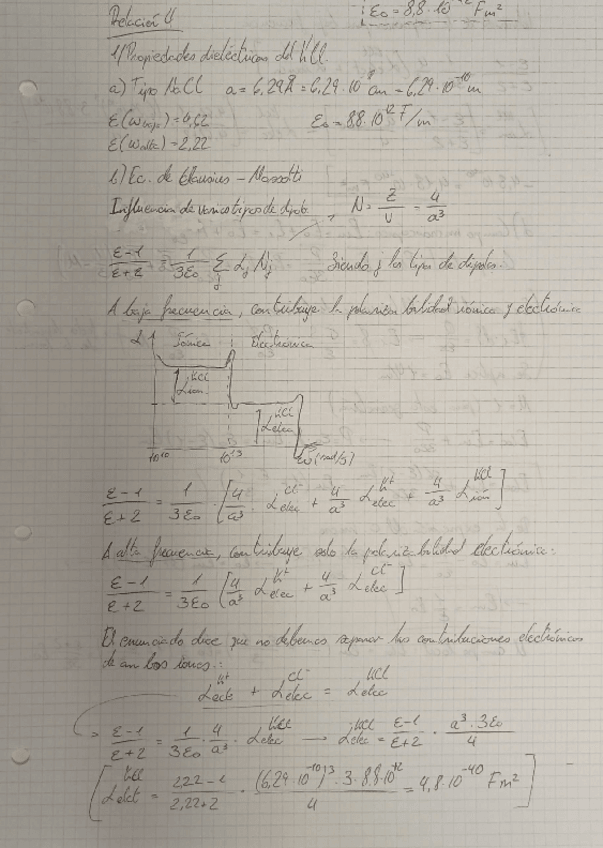 ε₀ = 8,8·10⁻¹² F m²
Relación 4
1) Propiedades dieléctricas del KCl.
a) Tipo NaCl a = 6,29 Å = 6,29·10⁻⁸ cm = 6,29·10⁻¹⁰ m
ε(ω baja) = 4,62 ε₀ = 8,8·10⁻¹² F/m
ε(ω alta) = 2,22
1) Ec. de Clausius - Mossotti
Influencia de varios tipos de dipolo, N = Z/V = 4/a³
(ε-1)/(ε+2) = 1/(3ε₀) Σ_j α_j N_j Siendo j los tipos de dipolos.
A baja frecuencia, contribuye la polarizabilidad iónica y electrónica
α Iónica Electrónica
α_ion^KCl
α_elec^KCl
10¹⁰ 10¹³ ω (rad/s)
(ε-1)/(ε+2) = 1/(3ε₀) · [4/a³ α_elec^Cl⁻ + 4/a³ α_elec^K⁺ + 4/a³ α_ion^KCl]
A alta frecuencia, contribuye solo la polarizabilidad electrónica:
(ε-1)/(ε+2) = 1/(3ε₀) [4/a³ α_elec^K⁺ + 4/a³ α_elec^Cl⁻]
El enunciado dice que no debemos separar las contribuciones electrónicas
de ambos iones.:
α_elec^K⁺ + α_elec^Cl⁻ = α_elec^KCl
(ε-1)/(ε+2) = 1/(3ε₀) · 4/a³ · α_elec^KCl → α_elec^KCl = (ε-1)/(ε+2) · (a³·3ε₀)/4
[α_elect^KCl = (2,22-1)/(2,22+2) · ((6,29·10⁻¹⁰)³·3·8,8·10⁻¹²)/4 = 4,8·10⁻⁴⁰ F m²]